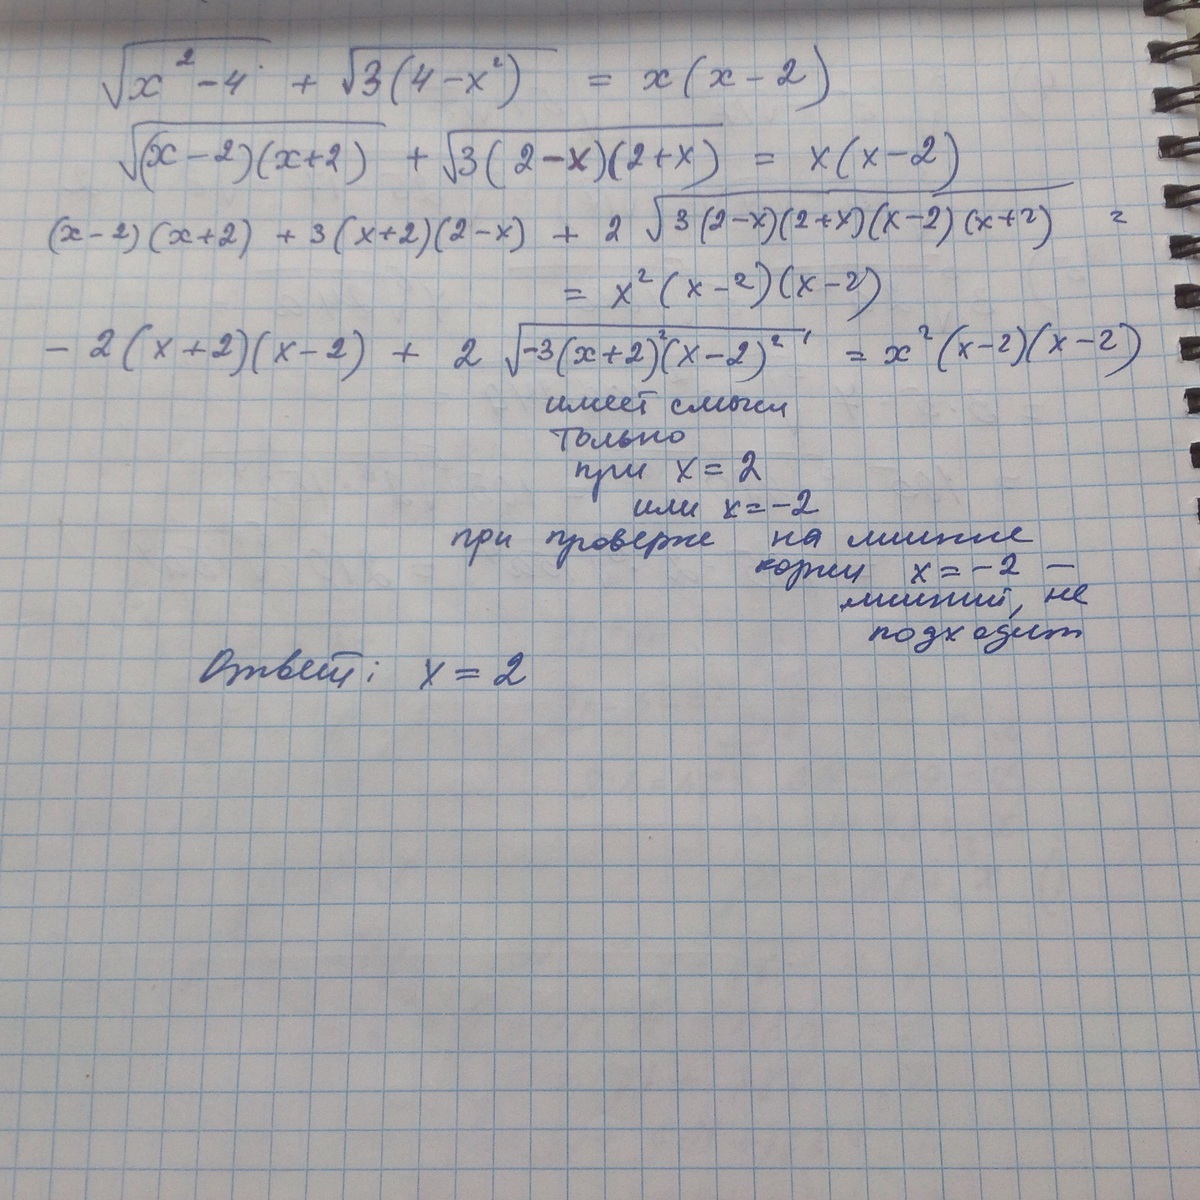 √(x² - 4) + √(3(4 - x²)) = x(x - 2)
√((x - 2)(x + 2)) + √(3(2 - x)(2 + x)) = x(x - 2)
(x - 2)(x + 2) + 3(x + 2)(2 - x) + 2√(3(2 - x)(2 + x)(x - 2)(x + 2)) =
= x²(x - 2)(x - 2)
- 2(x + 2)(x - 2) + 2√(-3(x + 2)²(x - 2)²) = x²(x - 2)(x - 2)
имеет смысл
только
при x = 2
или x = -2
при проверке на лишние
корни x = -2 -
лишний, не
подходит
Ответ: x = 2